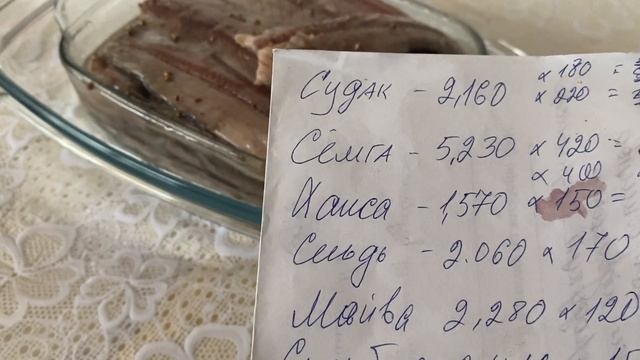 × 180 =
Судак – 2,160 × 220 =
Сёмга – 5,230 × 420 =
× 400
Хамса – 1,570 × 150 =
Сельдь – 2.060 × 170
Мойва 2,280 × 120